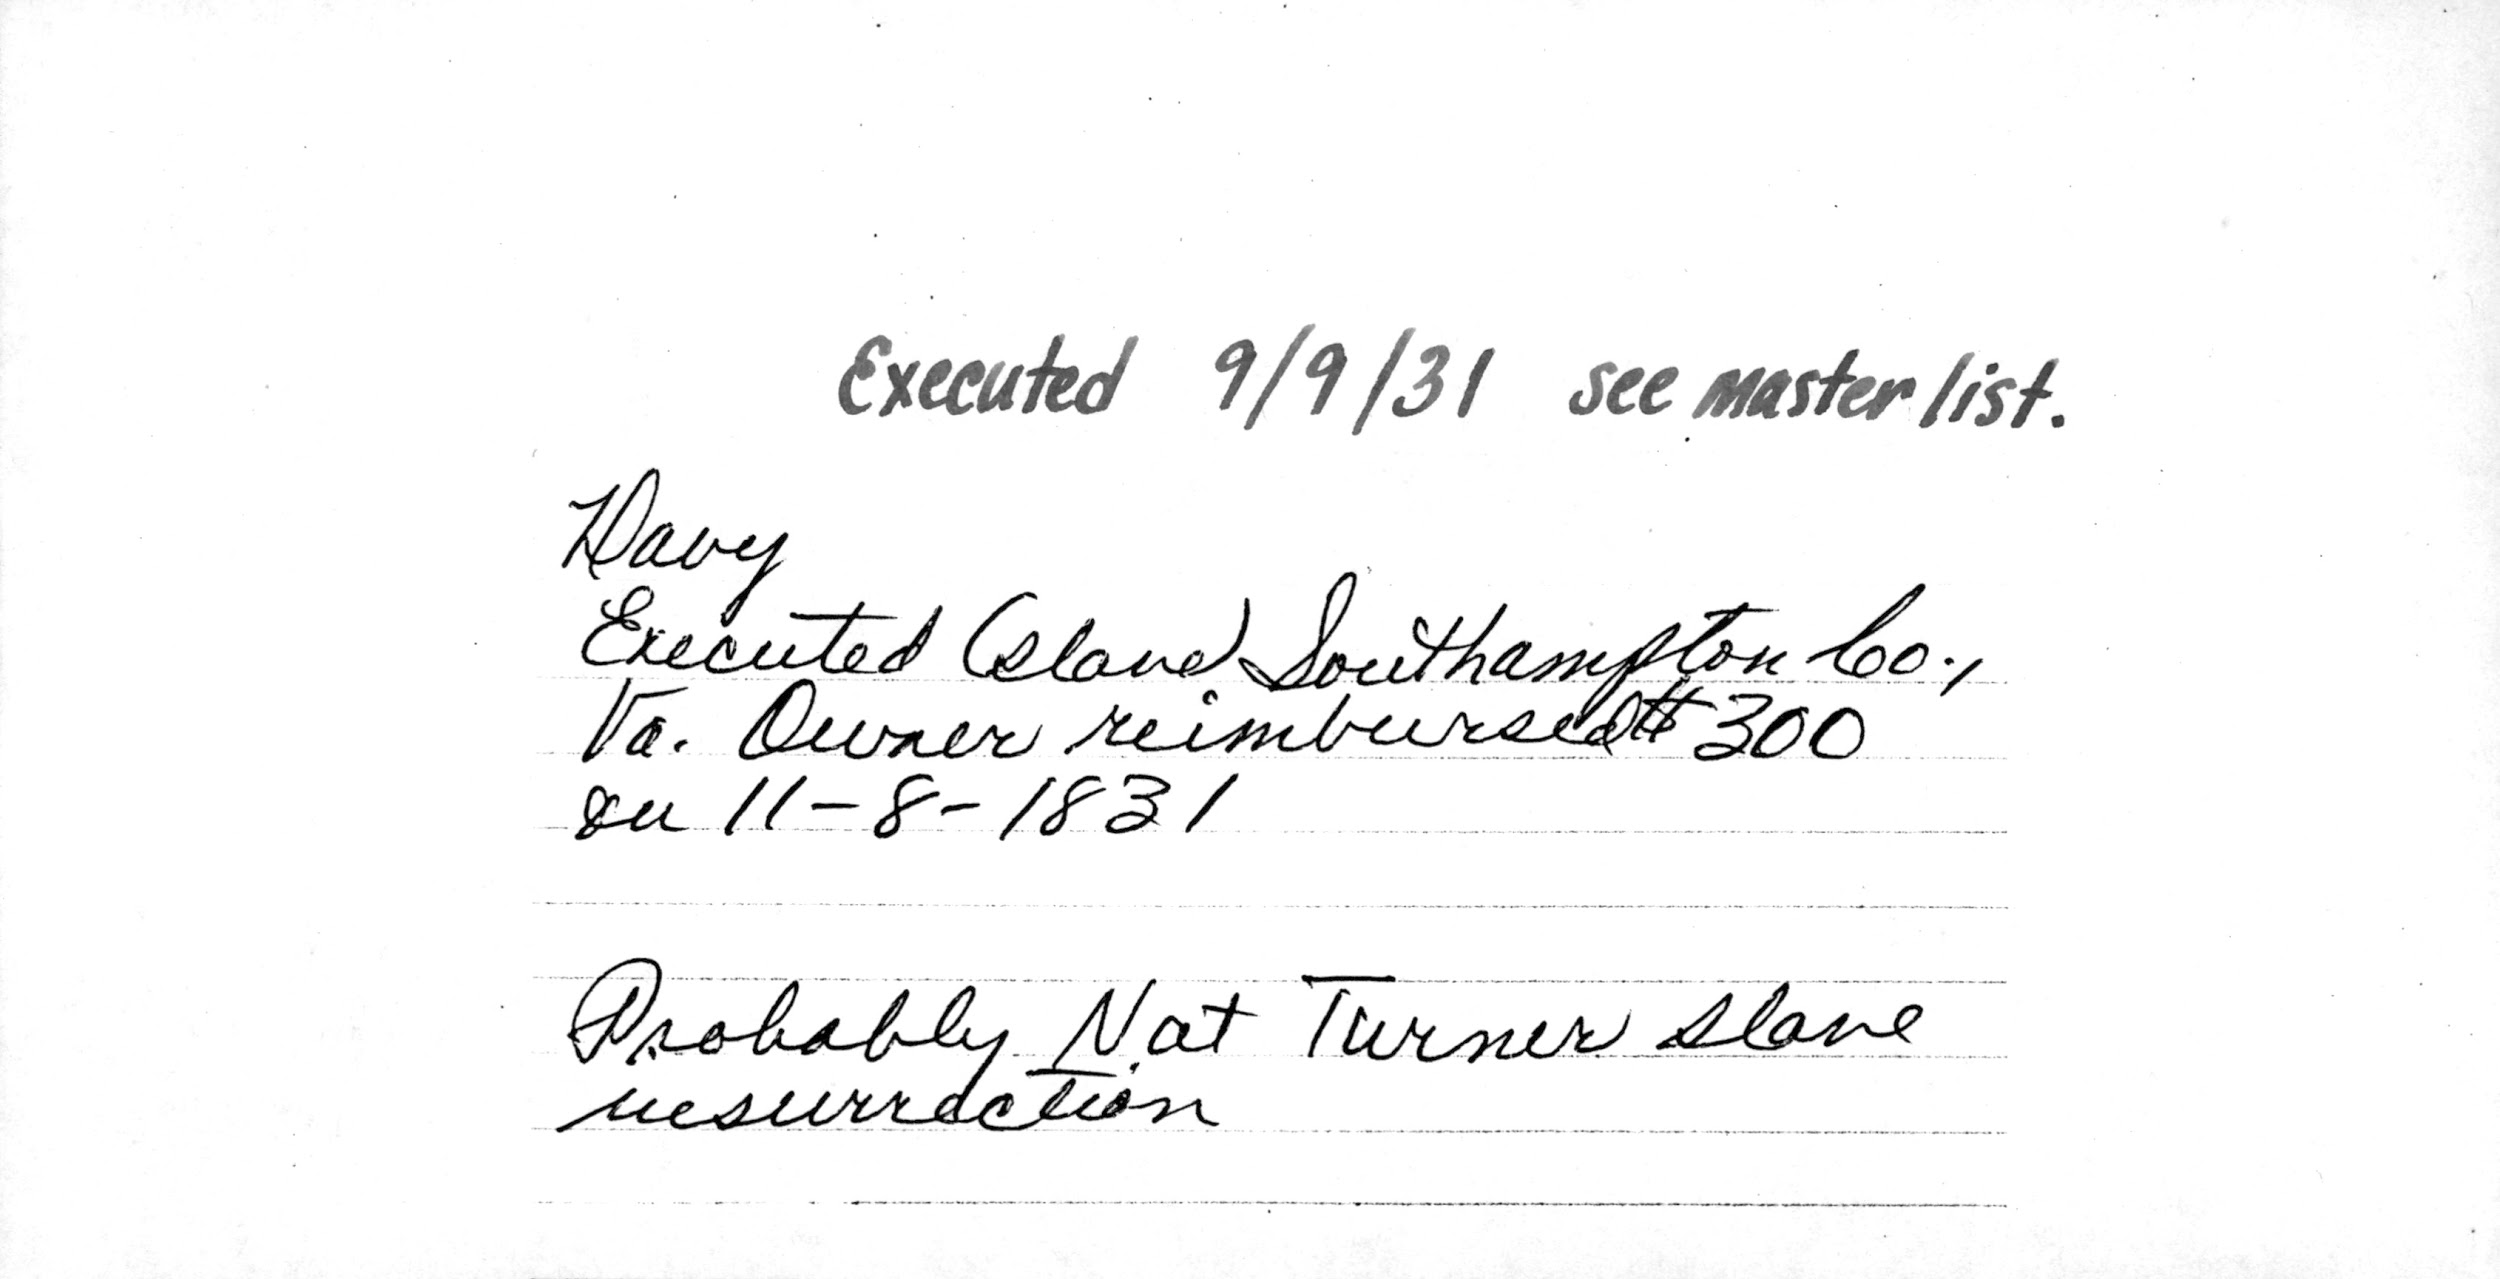 Executed 9/9/31 see master list.
Davy
Executed (slave) Southampton Co.,
Va. Owner reimbursed $300
on 11-8-1831
Probably Nat Turner slave
resurrection